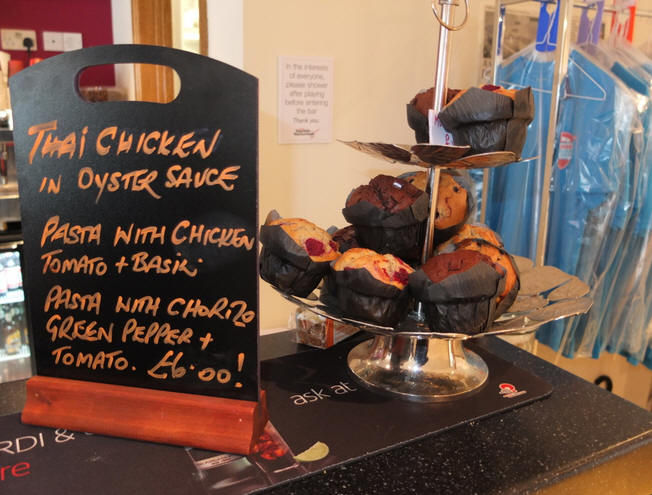 THAI CHICKEN
IN OYSTER SAUCE
PASTA WITH CHICKEN
TOMATO + BASIL.
PASTA WITH CHORIZO
GREEN PEPPER +
TOMATO. £6.00!
In the interests
of everyone,
please shower
after playing
before entering
the bar
Thank you.
ask at
RDI &
re